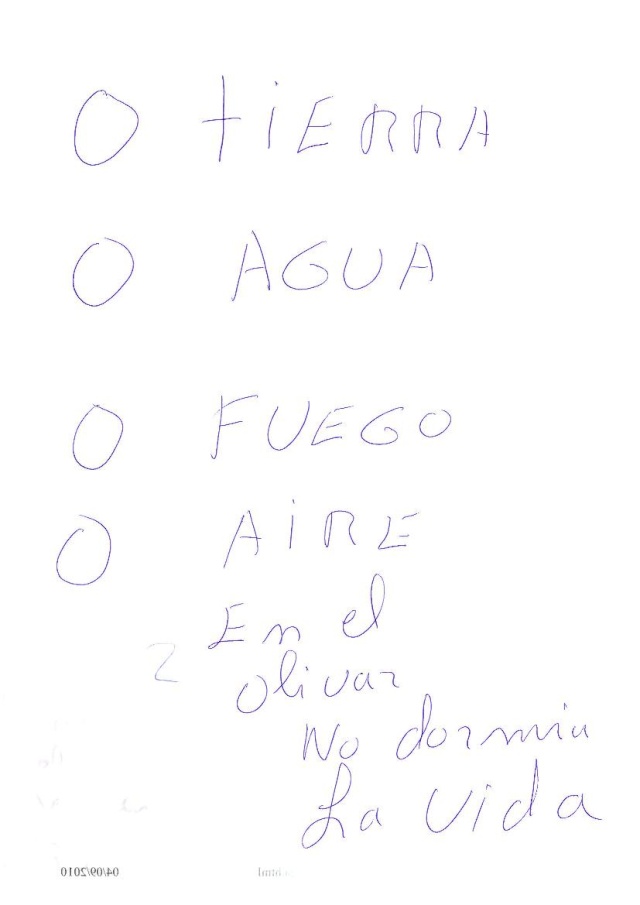 O tiERRA
O AGUA
O FUEGO
O AiRE
En el
2
olivar
No dormia
La vida
04/09/2010
html